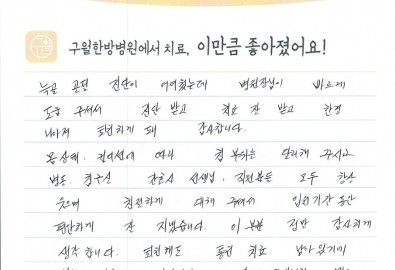 구월한방병원에서 치료, 이만큼 좋아졌어요!
늑골 골절 진단이 어려웠는데 병원장님이 바르게
도움 주셔서 진단 받고 치료 잘 받고 한결
나아져 퇴원하게 돼 감사합니다.
몸상태, 컨디션에 여러
병동, 간호사 선생님, 직원분들 모두 항상
웃으며 친절하게 대해 주셔서 입원기간 동안
편안하게 잘 지냈습니다. 이 부분 정말 감사하게
생각합니다. 퇴원 통원 치료 남아있기에